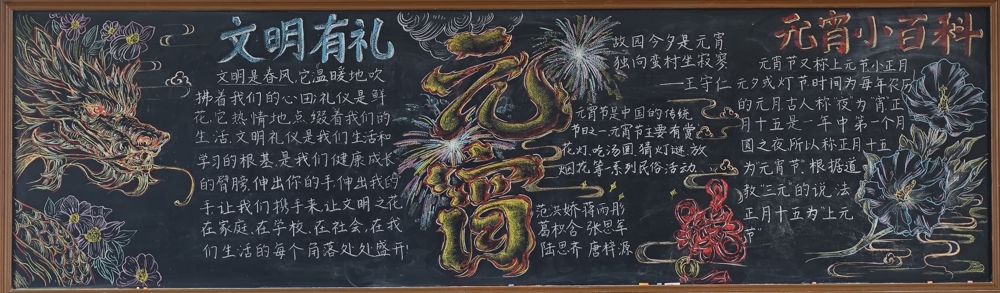 文明有礼
文明是春风,它温暖地吹
拂着我们的心田;礼仪是鲜
花,它热情地点缀着我们的
生活.文明礼仪是我们生活和
学习的根基,是我们健康成长
的臂膀.伸出你的手,伸出我的
手,让我们携手来,让文明之花
在家庭,在学校,在社会,在我
们生活的每个角落处处盛开!
元宵
故园今夕是元宵
独向蛮村坐寂寥
——王守仁
元宵节是中国的传统
节日之一元宵节主要有赏
花灯,吃汤圆,猜灯谜,放
烟花等系列民俗活动.
范洪娇 蒋雨彤
葛权含 张思军
陆思齐 唐梓源
元宵小百科
元宵节又称上元节小正月
元夕或灯节时间为每年农历
的元月古人称"夜"为"宵"正
月十五是一年中第一个月
圆之夜所以称正月十五
为元宵节.根据道
教"三元"的说法
正月十五为"上元
节"